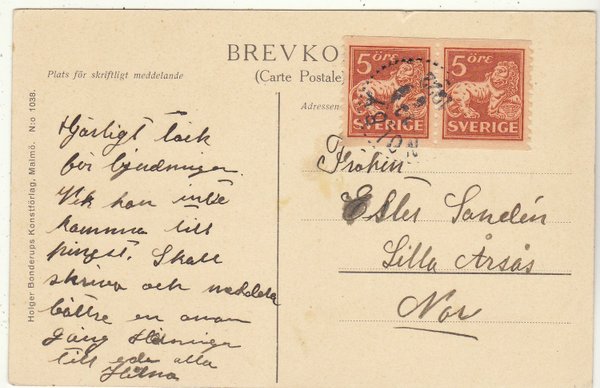 BREVKO
(Carte Postale)
Plats för skriftligt meddelande
Adressen
5 ÖRE
SVERIGE
5 ÖRE
SVERIGE
Hjärtligt tack
för bjudningen.
Vik kan inte
komma till
pingst. Skall
skriva och meddela
bättre en anan
gång Hälsningar
till eder alla
Fröken
Ester Sandén
Lilla Årsås
Nor
Holger Bonderups Konstförlag, Malmö. N:o 1038.